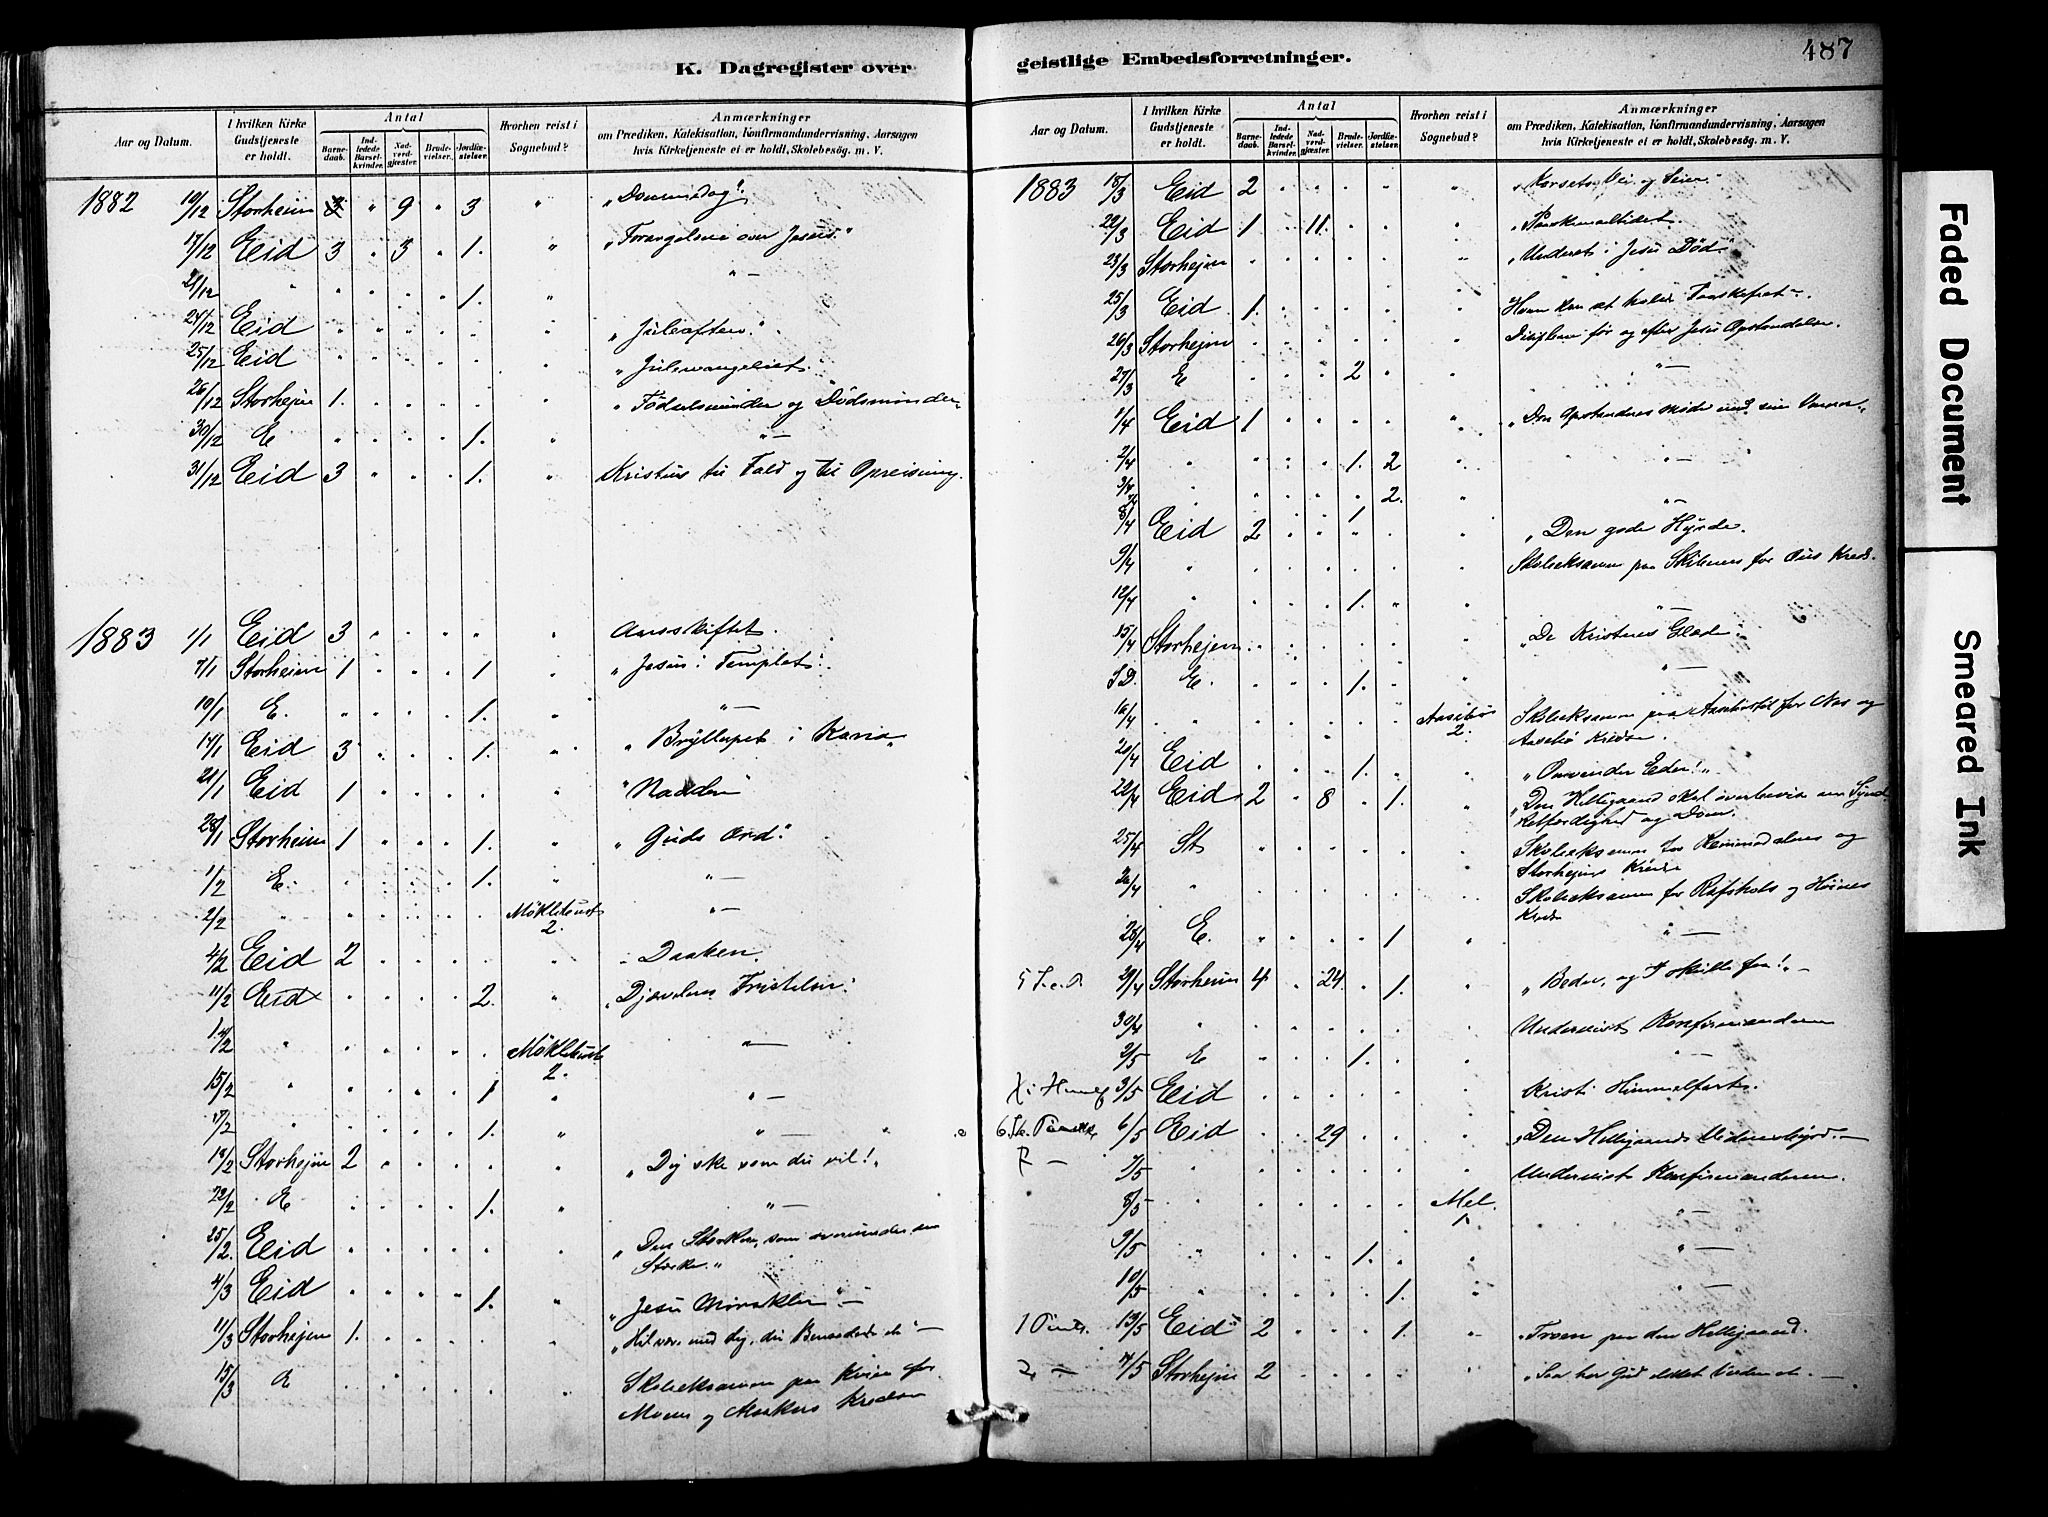 K. Dagregister over
Aar og Datum.
I hvilken Kirke Gudstjeneste er holdt.
Antal
Barnedaab.
Indledede Barselkvinder.
Nadverdgjæster.
Brudevielser.
Jordfæstelser.
Hvorhen reist i Sognebud?
Anmærkninger
om Prædiken, Katekisation, Konfirmandundervisning, Aarsagen
hvis Kirketjeneste ei er holdt, Skolebesøg. m. V.
1882 10/12 Storheim 3 " 9 " 3 " „Dommedag".
17/12 Eid 3 " 3 " 1. " over Jesus."
21/12 " " " " " 1. " " —
24/12 Eid " " " " " " „Juleaften."
25/12 Eid " " " " " " „Juleevangeliet."
26/12 Storhejm 1. " " " " " „Fødselsminder og Dødsminder„
30/12 E " " " " 1. " " —
31/12 Eid 3 " " " 1. " Kristus til Fald og til Opreisning.
1883 1/1 Eid 3 " " " " " Aarsskiftet.
7/1 Storheim 1 " " " 1 " „Jesus i Templet".
10/1 E. " " " " 1. " " —
14/1 Eid 3 " " " 1. " „Bryllupet i Kana„
21/1 Eid 1 " " " " "
28/1 Storheim 1 " " " 1. " „Guds Ord."
1/2 E. " " " " 1. " " —
2/2 " " " " " " Møklebust 2. " —
4/2 Eid 2 " " " " "
11/2 Eid " " " " 2. " „Djævelens Fristelser."
14/2 " " " " " " Møklebust 2. " —
15/2 " " " " " 1 " " —
17/2 " " " " " 1. " " —
18/2 Storhejm 2 " " " " " „Dig ske som du vil!„
22/2 E " " " " 1. " " —
25/2 Eid " " " " " " „Den Stærke, som overvinder den
Stærke."
4/3 Eid " " " " 1. " „Jesu Mirakler" —
11/3 Storhejm 1. " " " " " med dig, du
15/3 E " " " " " " Skoleeksamen paa for
og Kredse
geistlige Embedsforretninger.
487
Aar og Datum.
I hvilken Kirke Gudstjeneste er holdt.
Antal
Barnedaab.
Indledede Barselkvinder.
Nadverdgjæster.
Brudevielser.
Jordfæstelser.
Hvorhen reist i Sognebud?
Anmærkninger
om Prædiken, Katekisation, Konfirmandundervisning, Aarsagen
hvis Kirketjeneste ei er holdt, Skolebesøg. m. V.
1883 18/3 Eid 2 " " " " " „Korsets Vei og Seier."
22/3 Eid 1 " 11. " " " „Paaskemaaltidet.
23/3 Storhejm " " " " " " „Underet i Jesu Død"
25/3 Eid 1. " " " " " Hvem kan at holde
26/3 Storhejm " " " " " " Disiplene før og efter Jesu Opstandelse.
27/3 E " " " 2 " " " —
1/4 Eid 1 " " " " " „Den Opstandnes Møde med sine
2/4 " " " " 1. 2 " " —
3/4 " " " " " 2. " " —
8/4 Eid 2 " " 1 " " „Den gode Hyrde.
9/4 " " " " " " " Skoleeksamen paa for Kreds.
12/4 " " " " 1. " " " —
15/4 Storhejm " " " " " " „De Kristnes Glæde."
S.D. E. " " " 1. " " " —
16/4 " " " " " " Aasebø 2. Skoleeksamen paa for og
Aasebø Kredse.
20/4 Eid " " " 1. " " „Omvender Eder!„
22/4 Eid 2 " 8 " 1. " „Den Helligaand skal overbevise om Synd
Retfærdighed og Dom.
25/4 St " " " " " " Skoleeksamen for og
Storhejms Kredse
26/4 " " " " " " " Skoleeksamen for og
Kredse
28/4 E. " " " " 1 " " —
5 S.e.P. 29/4 Storheim 4 " 24. " 1. " „Beder, og I skulle faa!„ —
30/4 " " " " " " " Undervist Konfirmanderne
2/5 E " " " 1. " " " —
3/5 Eid " " " " " " Kristi Himmelfart.
6. 6/5 Eid " " 29 " " " „Den Helligaands Vidnesbyrd. —
7 — 7/5 " " " " " " " Undervist Konfirmanderne.
8/5 " " " " " " Mel. 1. " —
9/5 " " " " 1. " " " —
10/5 " " " " " 1. " " —
1 13/5 Eid 2 " " " 1. " „Troen paa den Helligaand.
2 — 14/5 Storhejm 2 " " " " " „Saa har Gud elsket Verden at. —
Faded Document
Smeared Ink